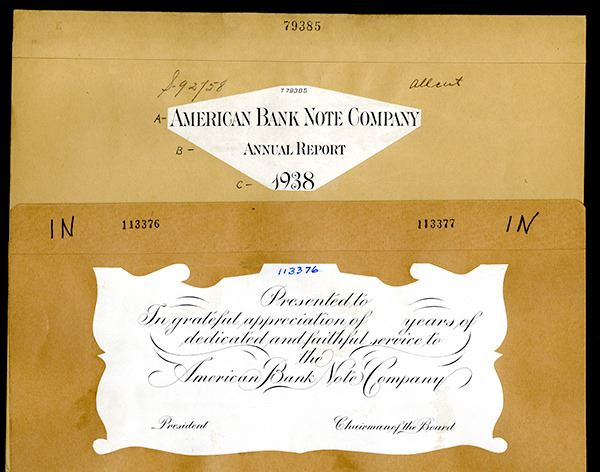 79385
S-92758 Allcut
T79385
A- AMERICAN BANK NOTE COMPANY
B- ANNUAL REPORT
C- 1938
IN 113376 113377 IN
113376
Presented to
In grateful appreciation of years of
dedicated and faithful service to
the
American Bank Note Company
President Chairman of the Board